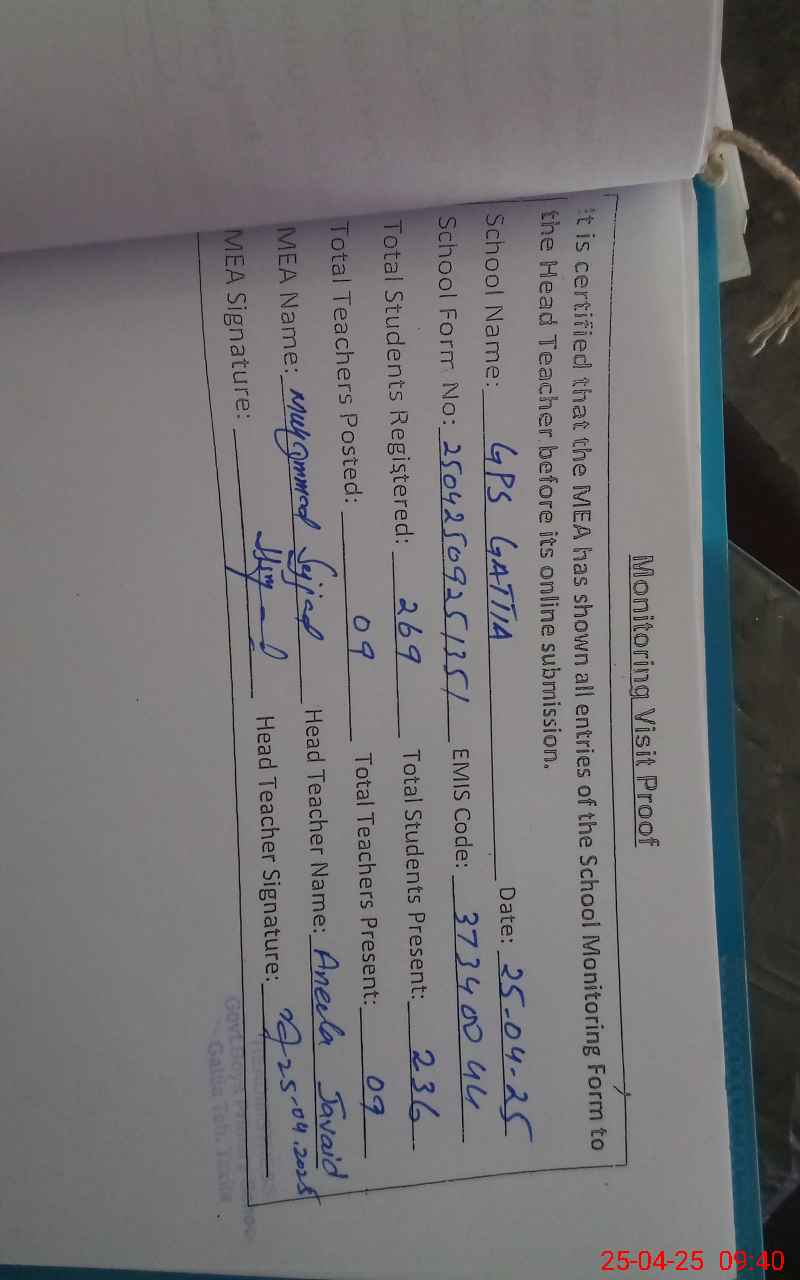 Monitoring Visit Proof
It is certified that the MEA has shown all entries of the School Monitoring Form to
the Head Teacher before its online submission.
School Name: GPS GATTIA Date: 25-04-25
School Form No: 25042509251351 EMIS Code: 37340044
Total Students Registered: 269 Total Students Present: 236
Total Teachers Posted: 09 Total Teachers Present: 09
MEA Name: Muhammad Sajjad Head Teacher Name: Aneela Javaid
MEA Signature: Head Teacher Signature: 25-04.2025
Govt. Boys
Teh. Taxila
25-04-25 09:40